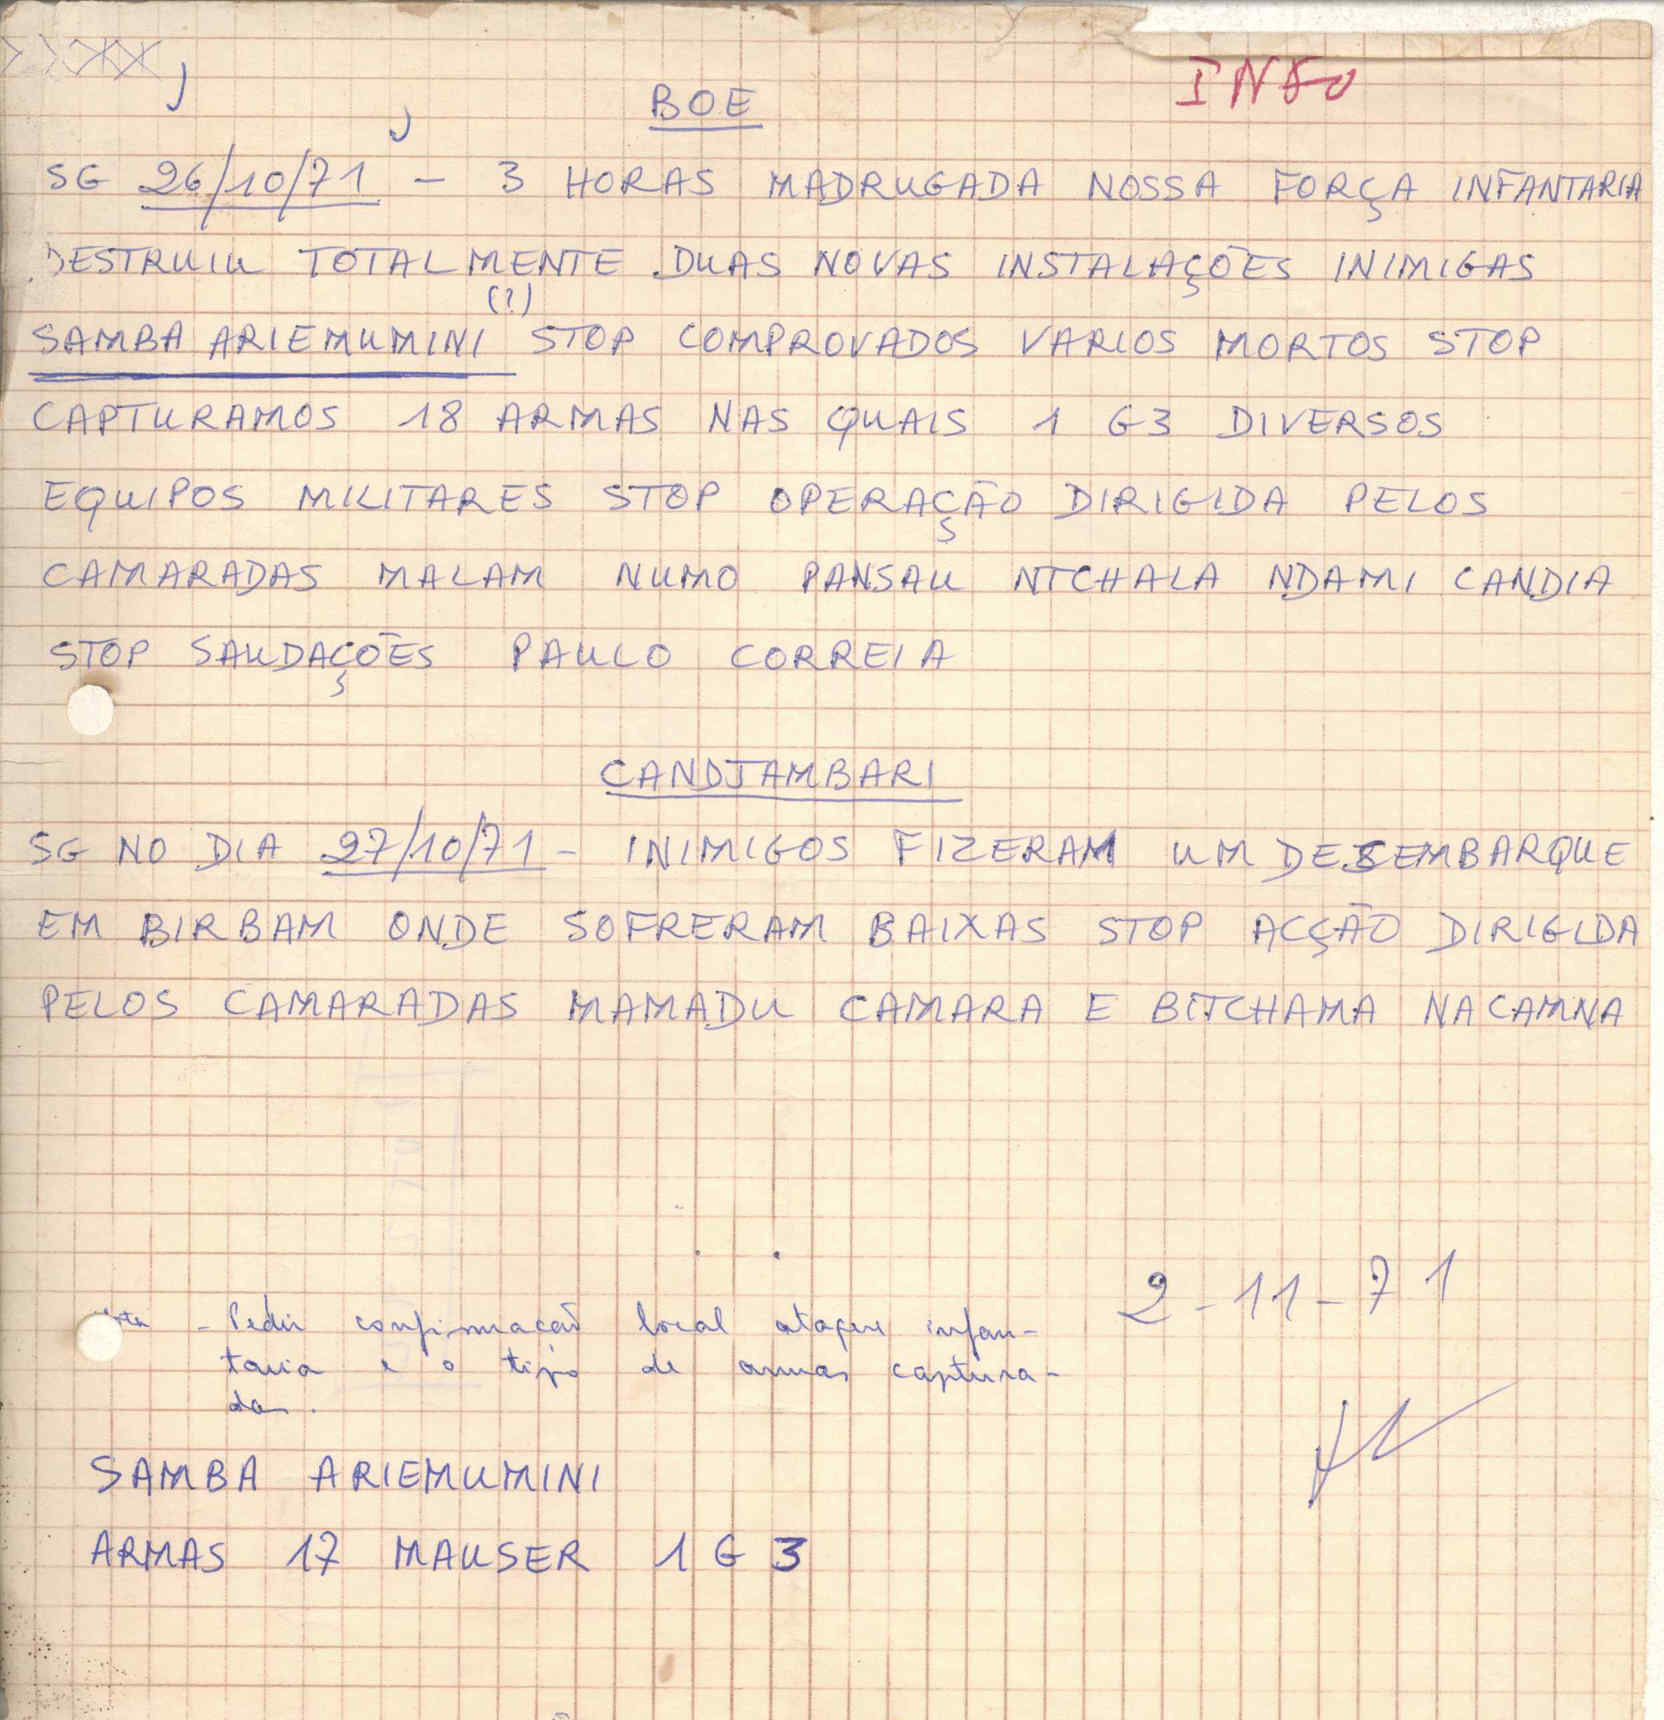 INFO
BOE
SG 26/10/71 - 3 HORAS MADRUGADA NOSSA FORÇA INFANTARIA
DESTRUIU TOTALMENTE DUAS NOVAS INSTALAÇÕES INIMIGAS
(?)
SAMBA ARIEMUMINI STOP COMPROVADOS VARIOS MORTOS STOP
CAPTURAMOS 18 ARMAS NAS QUAIS 1 G3 DIVERSOS
EQUIPOS MILITARES STOP OPERAÇÃO DIRIGIDA PELOS
CAMARADAS MALAM NUMO PANSAU NTCHALA NDAMI CANDIA
STOP SAUDAÇÕES PAULO CORREIA
CANDJAMBARI
SG NO DIA 27/10/71 - INIMIGOS FIZERAM UM DESEMBARQUE
EM BIRBAM ONDE SOFRERAM BAIXAS STOP ACÇÃO DIRIGIDA
PELOS CAMARADAS MAMADU CAMARA E BITCHAMA NACAMNA
2-11-71
- Pedir confirmação local ataque infan-
taria e o tipo de armas captura-
das.
SAMBA ARIEMUMINI
ARMAS 17 MAUSER 1 G 3